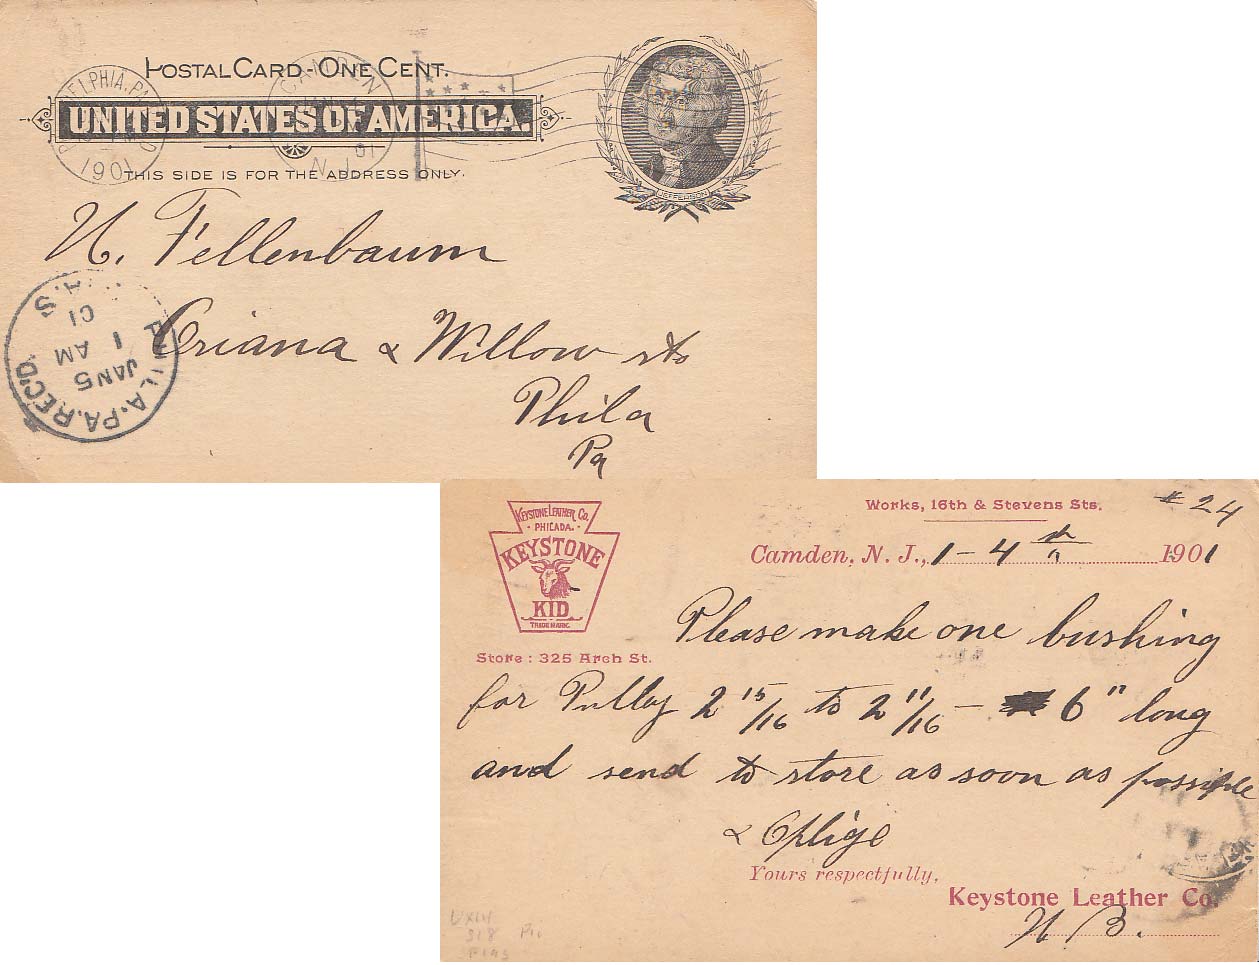 POSTAL CARD - ONE CENT.
UNITED STATES OF AMERICA.
THIS SIDE IS FOR THE ADDRESS ONLY.
JEFFERSON
PHILADELPHIA, PA.
1901
CAMDEN
JAN
01
N.J.
H. Fellenbaum
Oriana & Willow sts
Phila
Pa
PHILA. PA. REC'D.
JAN 5
1 AM
01
A.S
KEYSTONE LEATHER CO.
- PHILADA. -
KEYSTONE
KID
TRADE MARK.
Store: 325 Arch St.
Works, 16th & Stevens Sts.
# 24
Camden, N. J., 1 - 4th 1901
Please make one bushing
for Pulley 2 15/16 to 2 11/16 — 6" long
and send to store as soon as possible
& Oblige
Yours respectfully,
Keystone Leather Co.
H B.
UX14
S18
Flag